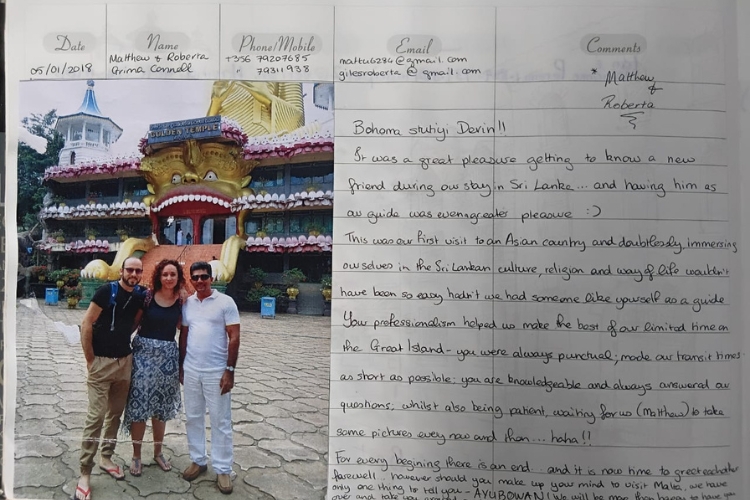 Date Name Phone/Mobile Email Comments
05/01/2018 Matthew & Roberta +356 79207685 mattu6286@gmail.com * Matthew
Grima Connell " 79311938 gilesroberta@gmail.com &
Roberta
GOLDEN TEMPLE
Bohoma stutiyi Devin!!
It was a great pleasure getting to know a new
friend during our stay in Sri Lanka... and having him as
our guide was even greater pleasure :)
This was our first visit to an Asian country and doubtlessly, immersing
ourselves in the Sri Lankan culture, religion and way of life wouldn't
have been so easy hadn't we had someone like yourself as a guide
Your professionalism helped us make the best of our limited time on
the Great Island - you were always punctual; made our transit times
as short as possible; you are knowledgeable and always answered our
questions; whilst also being patient, waiting for us (Matthew) to take
some pictures every now and then... haha!!
For every begining there is an end... and it is now time to greet eachother
farewell. however should you make up your mind to visit Malta, we have
only one thing to tell you - AYUBOWAN! We will be more than happy to have you
over and take you